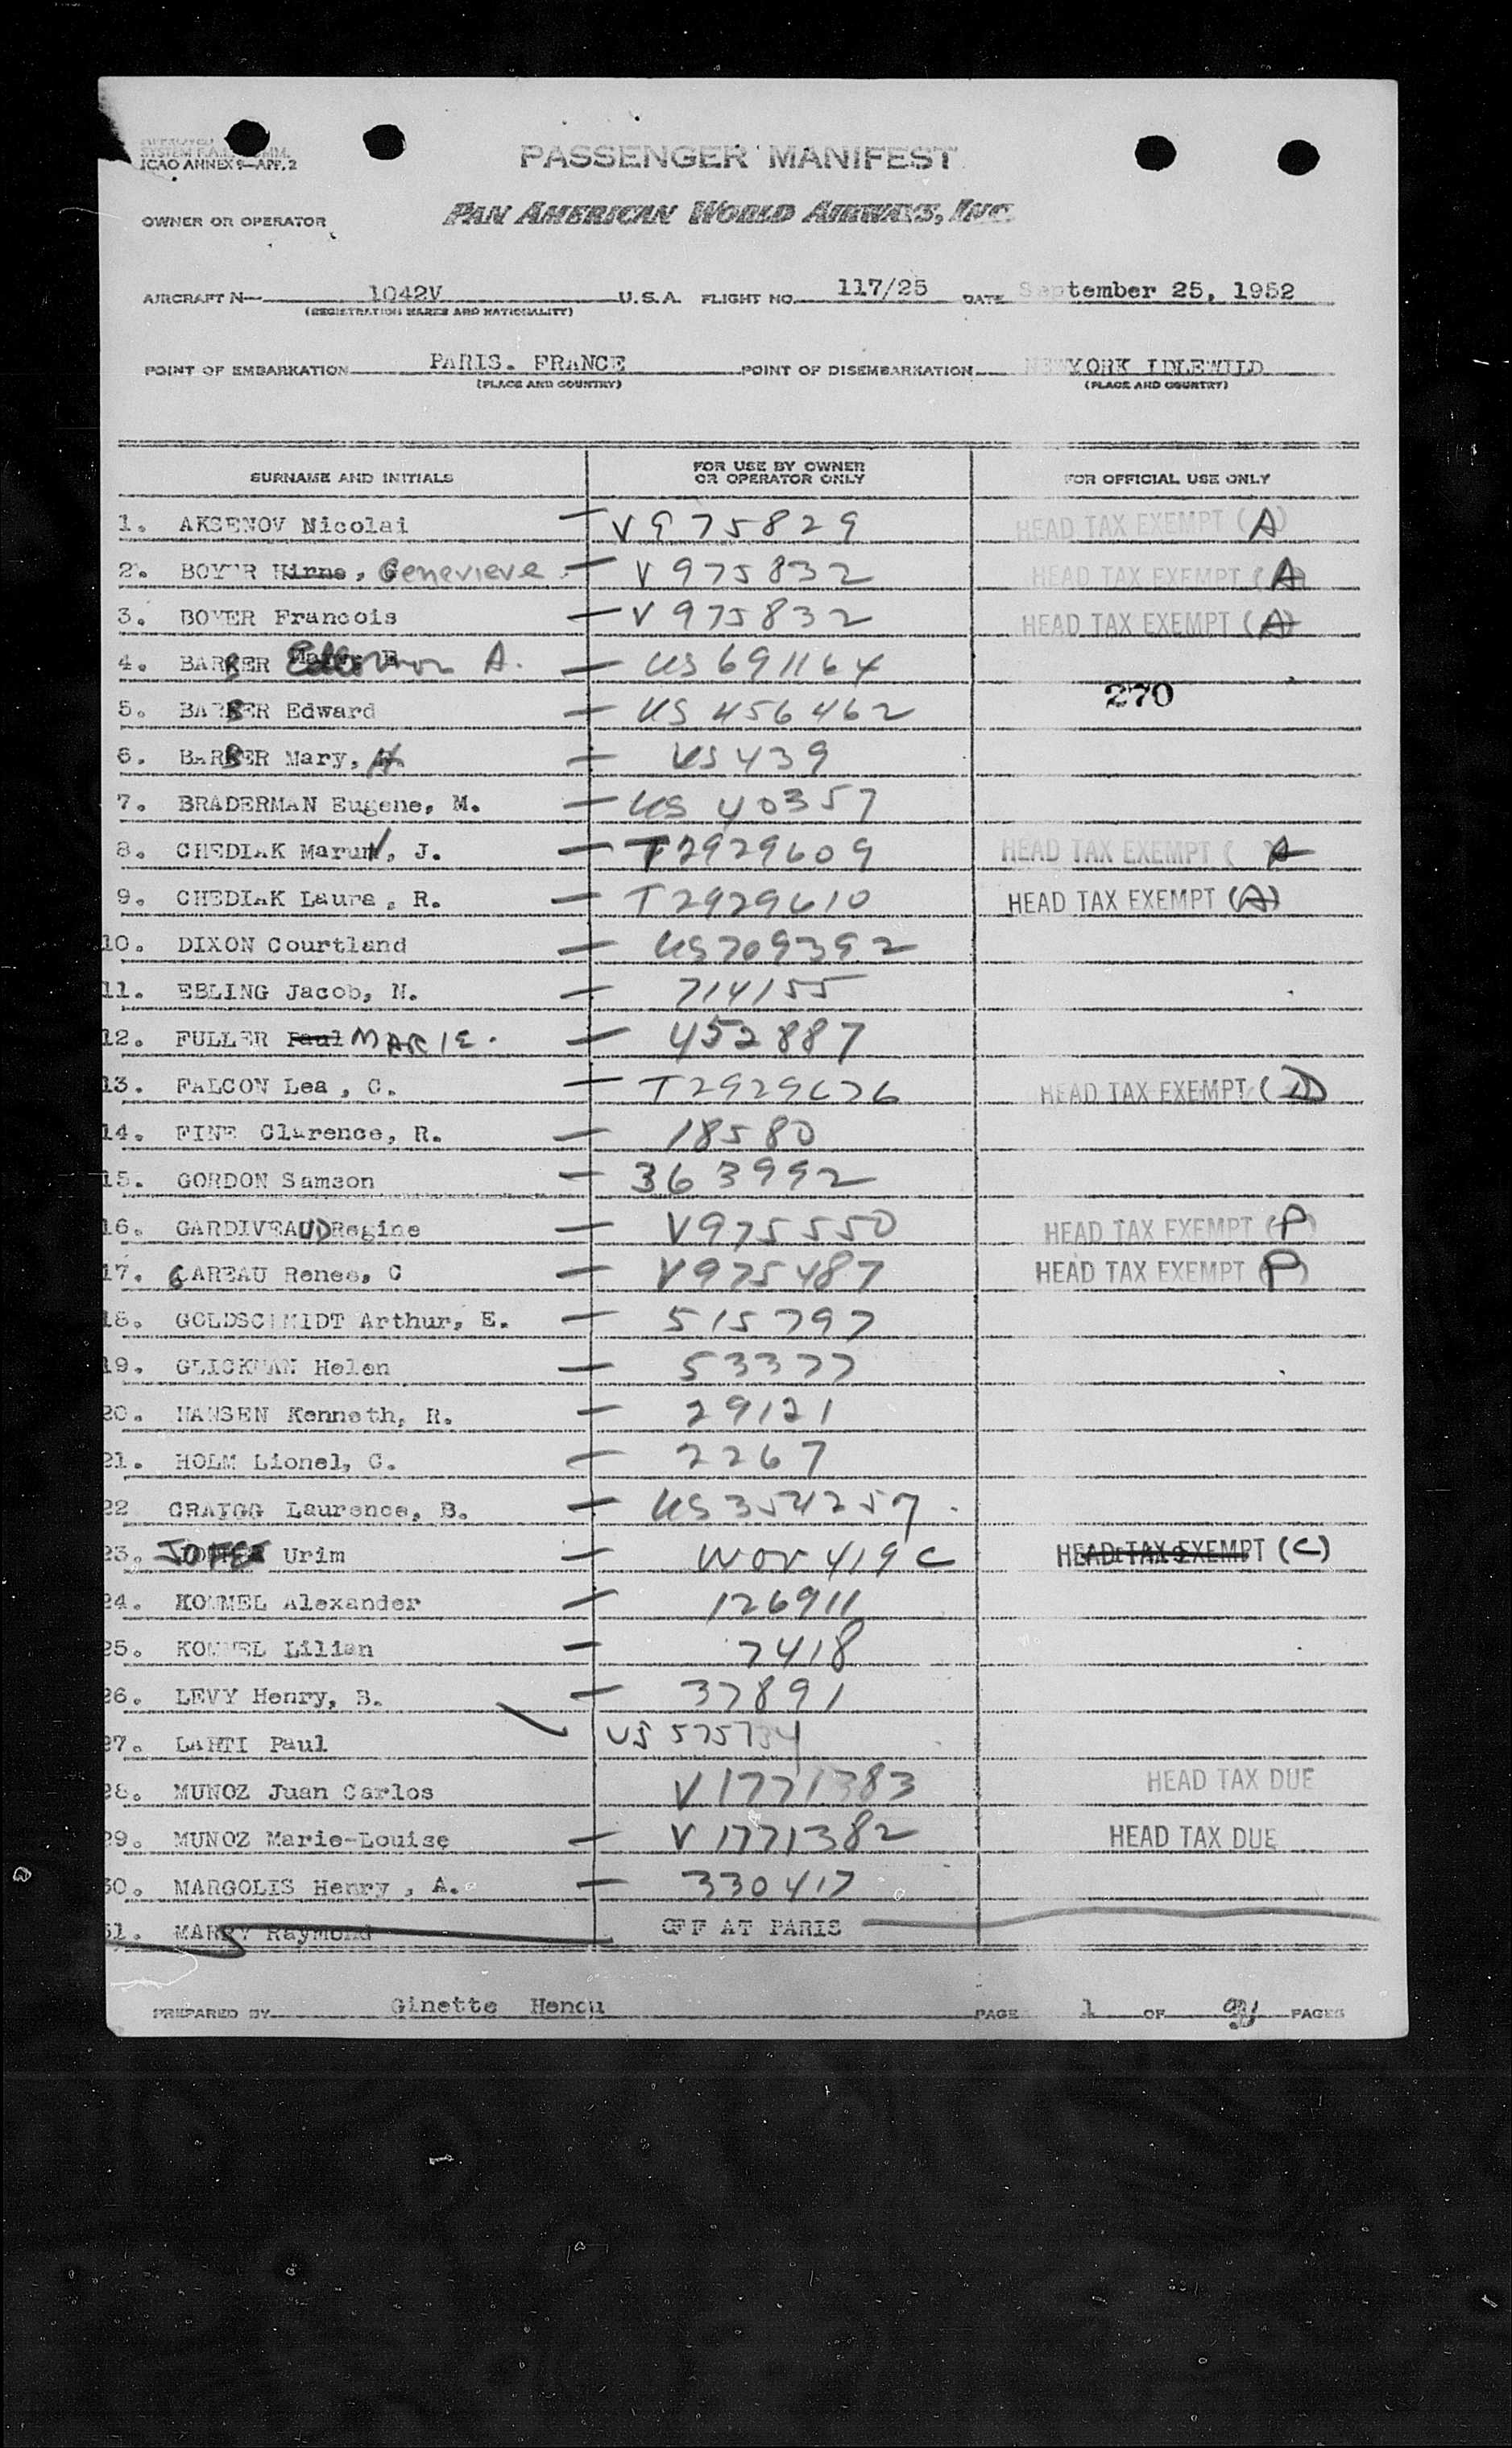 ICAO ANNEX 9—APP. 2
PASSENGER MANIFEST
OWNER OR OPERATOR PAN AMERICAN WORLD AIRWAYS, INC.
AIRCRAFT N— 1042V U.S.A. FLIGHT NO. 117/25 DATE September 25, 1952
(REGISTRATION MARKS AND NATIONALITY)
POINT OF EMBARKATION PARIS. FRANCE POINT OF DISEMBARKATION NEW YORK IDLEWILD
(PLACE AND COUNTRY) (PLACE AND COUNTRY)
SURNAME AND INITIALS FOR USE BY OWNER OR OPERATOR ONLY FOR OFFICIAL USE ONLY
1. AKSENOV Nicolai — V975829 HEAD TAX EXEMPT (A)
2. BOYER Hirne, Genevieve — V975832 HEAD TAX EXEMPT (A)
3. BOYER Francois — V975832 HEAD TAX EXEMPT (A)
4. BARBER A. — US 691164
5. BARBER Edward — US 456462 270
6. BARBER Mary, — US 439
7. BRADERMAN Eugene, M. — US 40357
8. CHEDIAK Marun, J. — T2929609 HEAD TAX EXEMPT (A
9. CHEDIAK Laura, R. — T2929610 HEAD TAX EXEMPT (A)
10. DIXON Courtland — US709392
11. EBLING Jacob, N. — 714155
12. FULLER Paul MARIE. — 452887
13. FALCON Lea, C. — T2929626 HEAD TAX EXEMPT (D)
14. FINE Clarence, R. — 18580
15. GORDON Samson — 363992
16. GARDIVEAUD Regine — V975550 HEAD TAX EXEMPT (P)
17. GAREAU Renee, C — V975487 HEAD TAX EXEMPT (P)
18. GOLDSCHMIDT Arthur, E. — 515797
19. GLICKMAN Helen — 53377
20. HANSEN Kenneth, R. — 29121
21. HOLM Lionel, C. — 2267
22 CRAIGG Laurence, B. — US354257.
23. JOFES Urim — WOV 419C HEAD TAX EXEMPT (C)
24. KOMMEL Alexander — 126911
25. KOMMEL Lilian — 7418
26. LEVY Henry, B. — 37891
27. LAHTI Paul US 575734
28. MUNOZ Juan Carlos V1771383 HEAD TAX DUE
29. MUNOZ Marie-Louise — V1771382 HEAD TAX DUE
30. MARGOLIS Henry, A. — 330417
31. MARRY Raymond OFF AT PARIS
PREPARED BY Ginette Hencu PAGE 1 OF PAGES